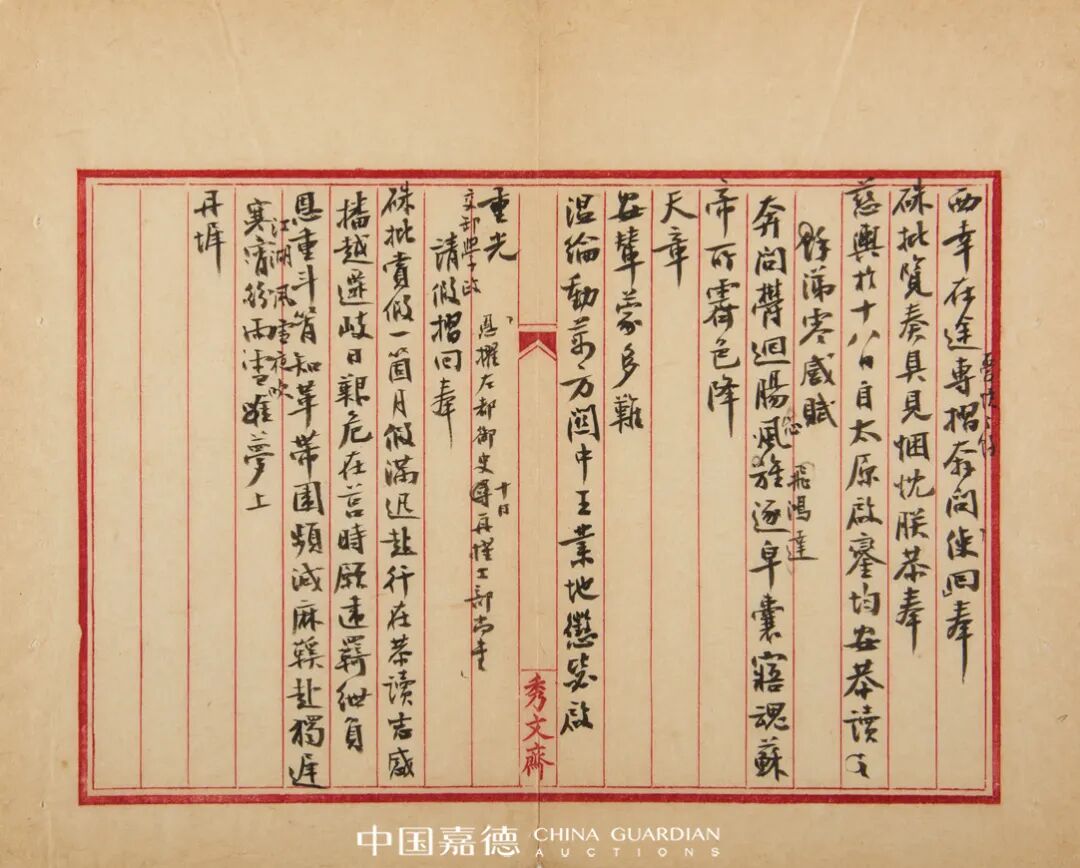 西幸在途專摺奔問使回奉
硃批覽奏具見悃忱朕恭奉
慈輿於十八日自太原啟蹕均安恭讀之
餘涕零感賦
奔問鬱迴腸風旌逐皁囊寤魂蘇
飛鴻達
帝所霽色降
天章
安輦蒙多難
溫綸動萬方關中王業地懲毖啟
重光
恩擢左都御史
十日
再擢工部尚書
請假摺回奉
硃批賞假一箇月假滿迅赴行在恭讀志感
播越遘岐日艱危在莒時願違羇絏負
恩重斗筲知革帶圍頻減麻鞵赴獨遲
江湖風雪夜
寒宵雨雪夢上
丹墀
秀文齋
中国嘉德 CHINA GUARDIAN
AUCTIONS